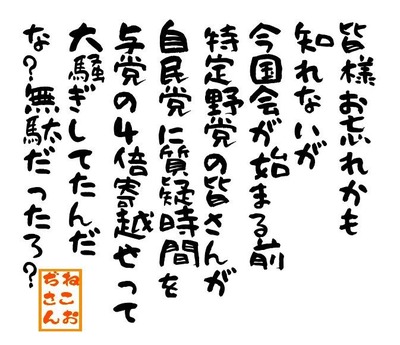 皆様お忘れかも
知れないが
今国会が始まる前
特定野党の皆さんが
自民党に質疑時間を
与党の4倍寄越せって
大騒ぎしてたんだ
な？無駄だったろ？
ねこお
ぢさん